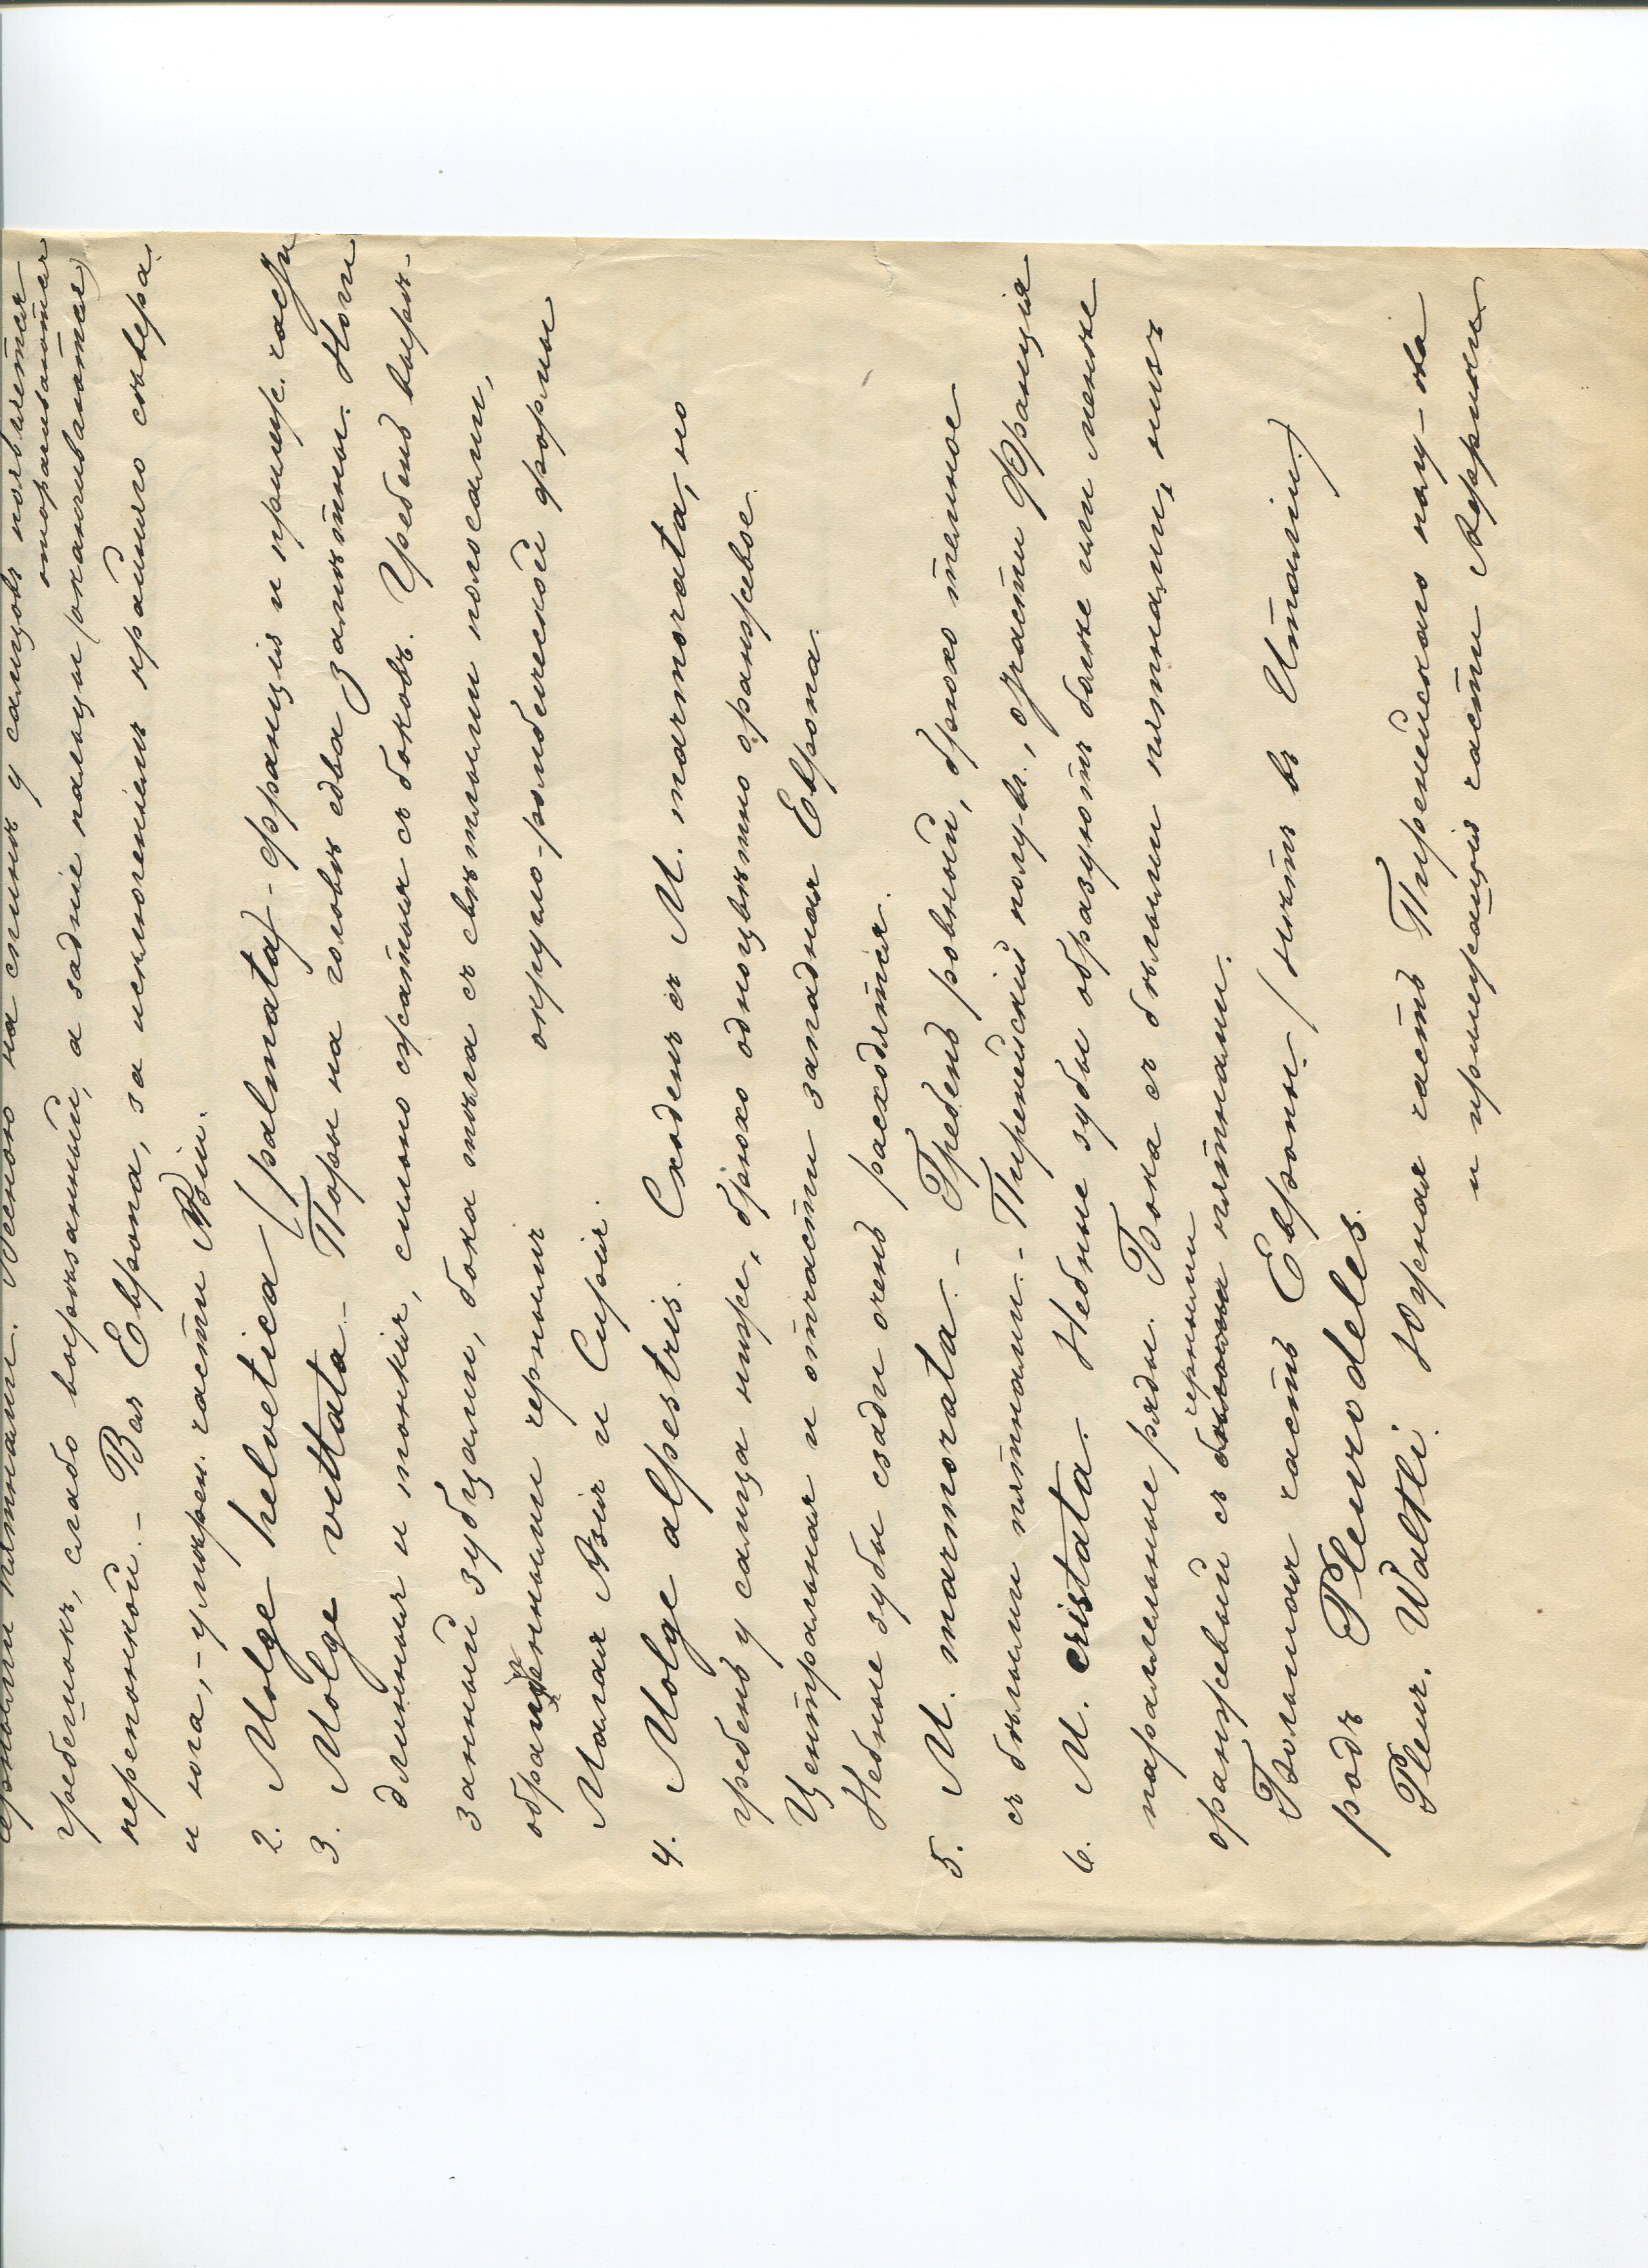 черными пятнами. Весною на спинѣ у самцовъ появляется
гребешокъ, слабо вырѣзанный, а задніе пальцы оторачиваются
перепонкой. – Вся Европа, за исключеніемъ крайняго сѣвера
(оканчиваются)
и юга, – умѣрен. части Азіи.
2. Molge helvetica (palmata) – Франція и прилеж. части
3. Molge vittata – Поры на головѣ едва замѣтны. Ноги
длинныя и тонкія, сильно сжатыя съ боковъ. Гребень вырѣ-
занный зубцами, бока тѣла съ свѣтлыми полосами,
обрамленными черными
округло-ромбической формы
Малая Азія и Сирія.
4. Molge alpestris. Сходенъ съ M. marmorata, но
гребень у самца ниже, брюхо одноцвѣтно оранжевое.
Центральная и отчасти западная Европа.
Небные зубы сзади очень расходятся.
5. M. marmorata. – Гребень ровный, брюхо темное
съ бѣлыми пятнами. – Пиренейскій полу-въ., отчасти Франція
6. M. cristata. Небные зубы образуютъ болѣе или менѣе
параллельные ряды. Бока съ бѣлыми пятнами, низъ
оранжевый съ черными пятнами.
Большая часть Европы. (нѣтъ въ Италіи)
родъ Pleurodeles.
Pleur. Waltli. Южная часть Пиренейскаго полу-ва
и прилежащія части Африки.